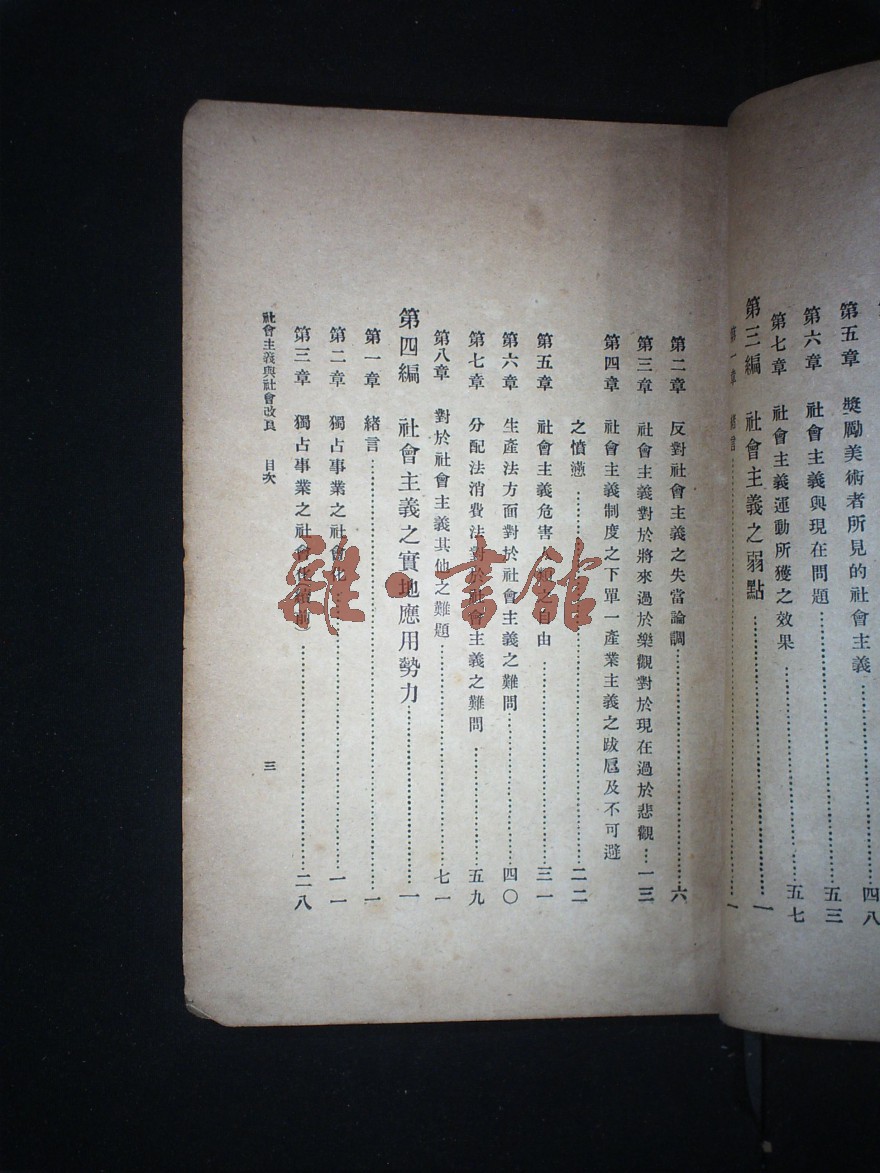 第五章 獎勵美術者所見的社會主義……四八
第六章 社會主義與現在問題……五三
第七章 社會主義運動所獲之效果……五七
第三編 社會主義之弱點……一
第一章 緒言……一
第二章 反對社會主義之失當論調……六
第三章 社會主義對於將來過於樂觀對於現在過於悲觀……一三
第四章 社會主義制度之下單一產業主義之跋扈及不可避
之憤懣……二二
第五章 社會主義危害人類之自由……三一
第六章 生產法方面對於社會主義之難問……四〇
第七章 分配法消費法對於社會主義之難問……五九
第八章 對於社會主義其他之難題……七一
第四編 社會主義之實地應用勢力……一
第一章 緒言……一
第二章 獨占事業之社會化……一一
第三章 獨占事業之社會化(續前)……二八
社會主義與社會改良 目次
三
雜·書館